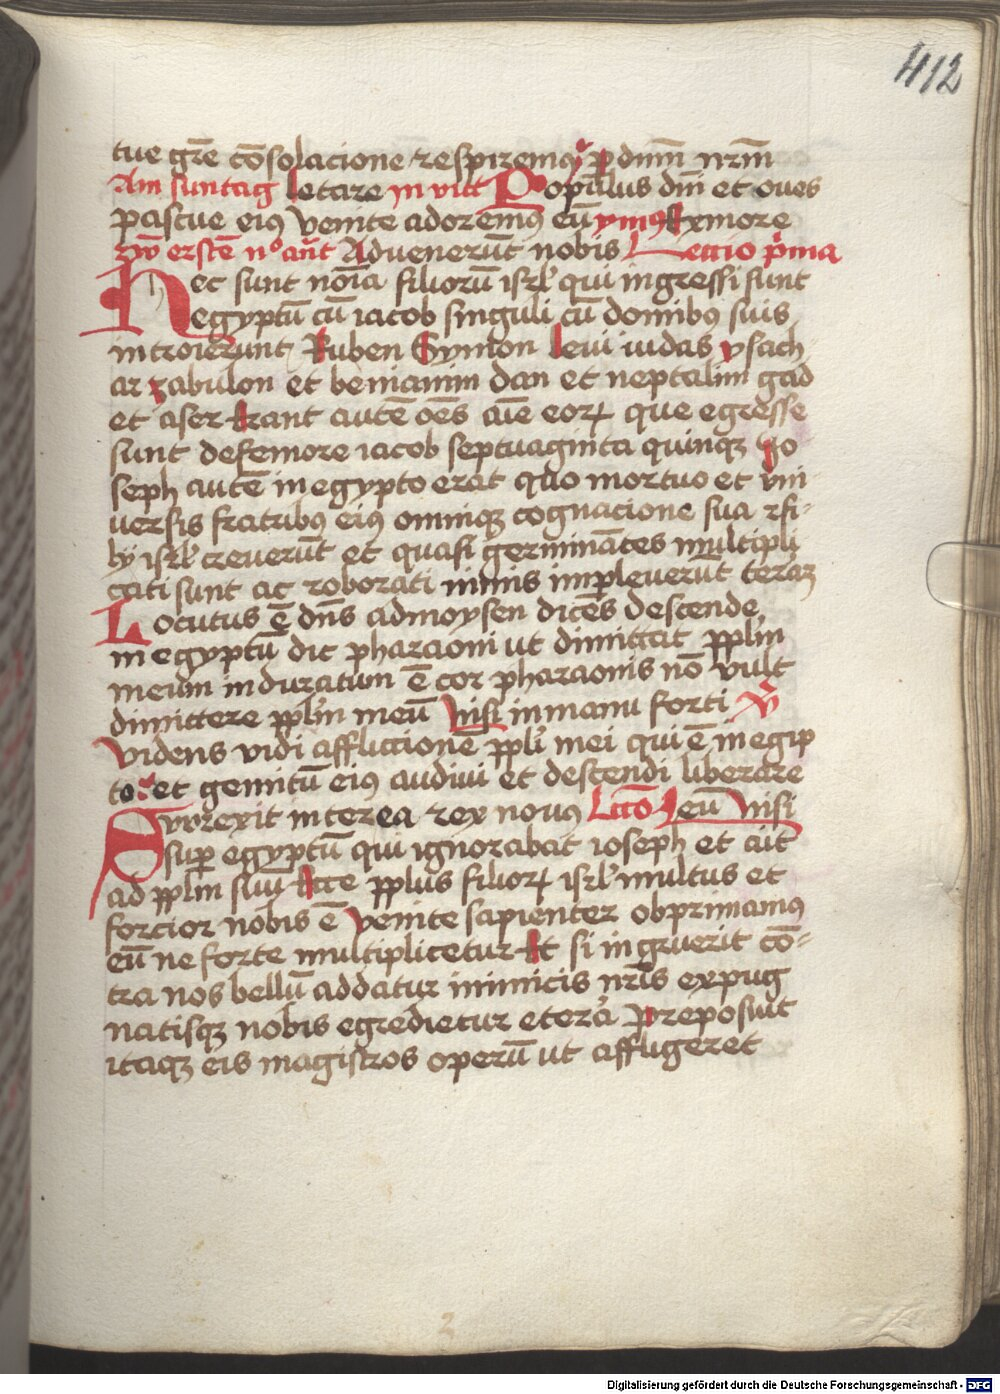 412
tue gr̄e cōsolacione respiremꝰ p dn̄m nr̄m
Am suntag letare in vitt Popūlus dn̄i et oues
pascue eiꝰ Venite adoremꝰ eū ymꝰ Exmore
zw̄ erstē n° ant̄ Aduenerūt nobis Lectio p̄ma
Hec sunt noīa filiorū isrl̄ qui ingressi sunt
egyptū cū iacob singuli cū domibꝰ suis
introierunt Ruben Symon leui iudas ysach
ar zabulon et beniamin dan et neptalim gad
et aser Erant autē oēs aīe eorꝝ que egresse
sunt defemore iacob septuaginta quinqꝫ Io
seph autē in egypto erat quo mortuo et vni
uersis fratribꝰ eiꝰ omniqꝫ cognacione sua fi-
lij isrl̄ creuerūt et quasi germināntes multipli
cati sunt ac roborati nimis impleuerūt terā
Locutus ē dn̄s admoysen dicēs descende
in egyptū dic pharaoni ut dimittat ppl̄m
meum induratum ē cor pharaonis nō vult
dimittere ppl̄m meū nisi inmanu forti V̄
Videns vidi afflictionē ppl̄i mei qui ē in egip
to et gemitū eiꝰ audiui et descendi liberare
Svrrexit interea rex nouꝰ Lctō eū Nisi
sup egyptū qui ignorabat ioseph et ait
ad ppl̄m suū Ecce pplus filiorꝝ isrl̄ multus et
forcior nobis ē Venite sapienter obprimamꝰ
eū ne forte multiplicetur Et si ingruerit cō-
tra nos bellū addatur inimicis nr̄is expug
natisqꝫ nobis egredietur eterā Preposuit
itaqꝫ eis magistros operū ut affligeret
2
Digitalisierung gefördert durch die Deutsche Forschungsgemeinschaft - DFG